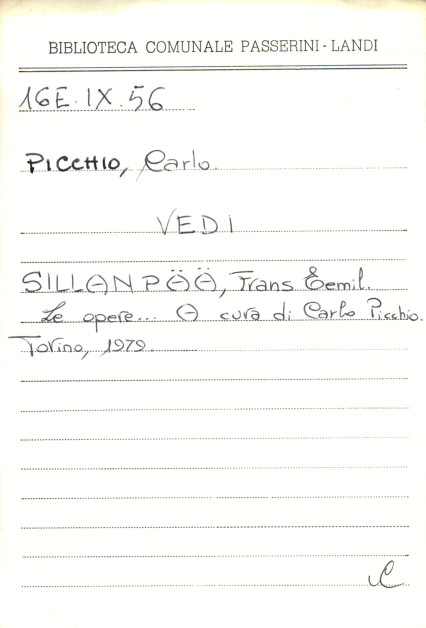 BIBLIOTECA COMUNALE PASSERINI - LANDI
16E.IX.56
PICCHIO, Carlo.
VEDI
SILLANPÄÄ, Frans Eemil.
Le opere... A cura di Carlo Picchio.
Torino, 1979.
C